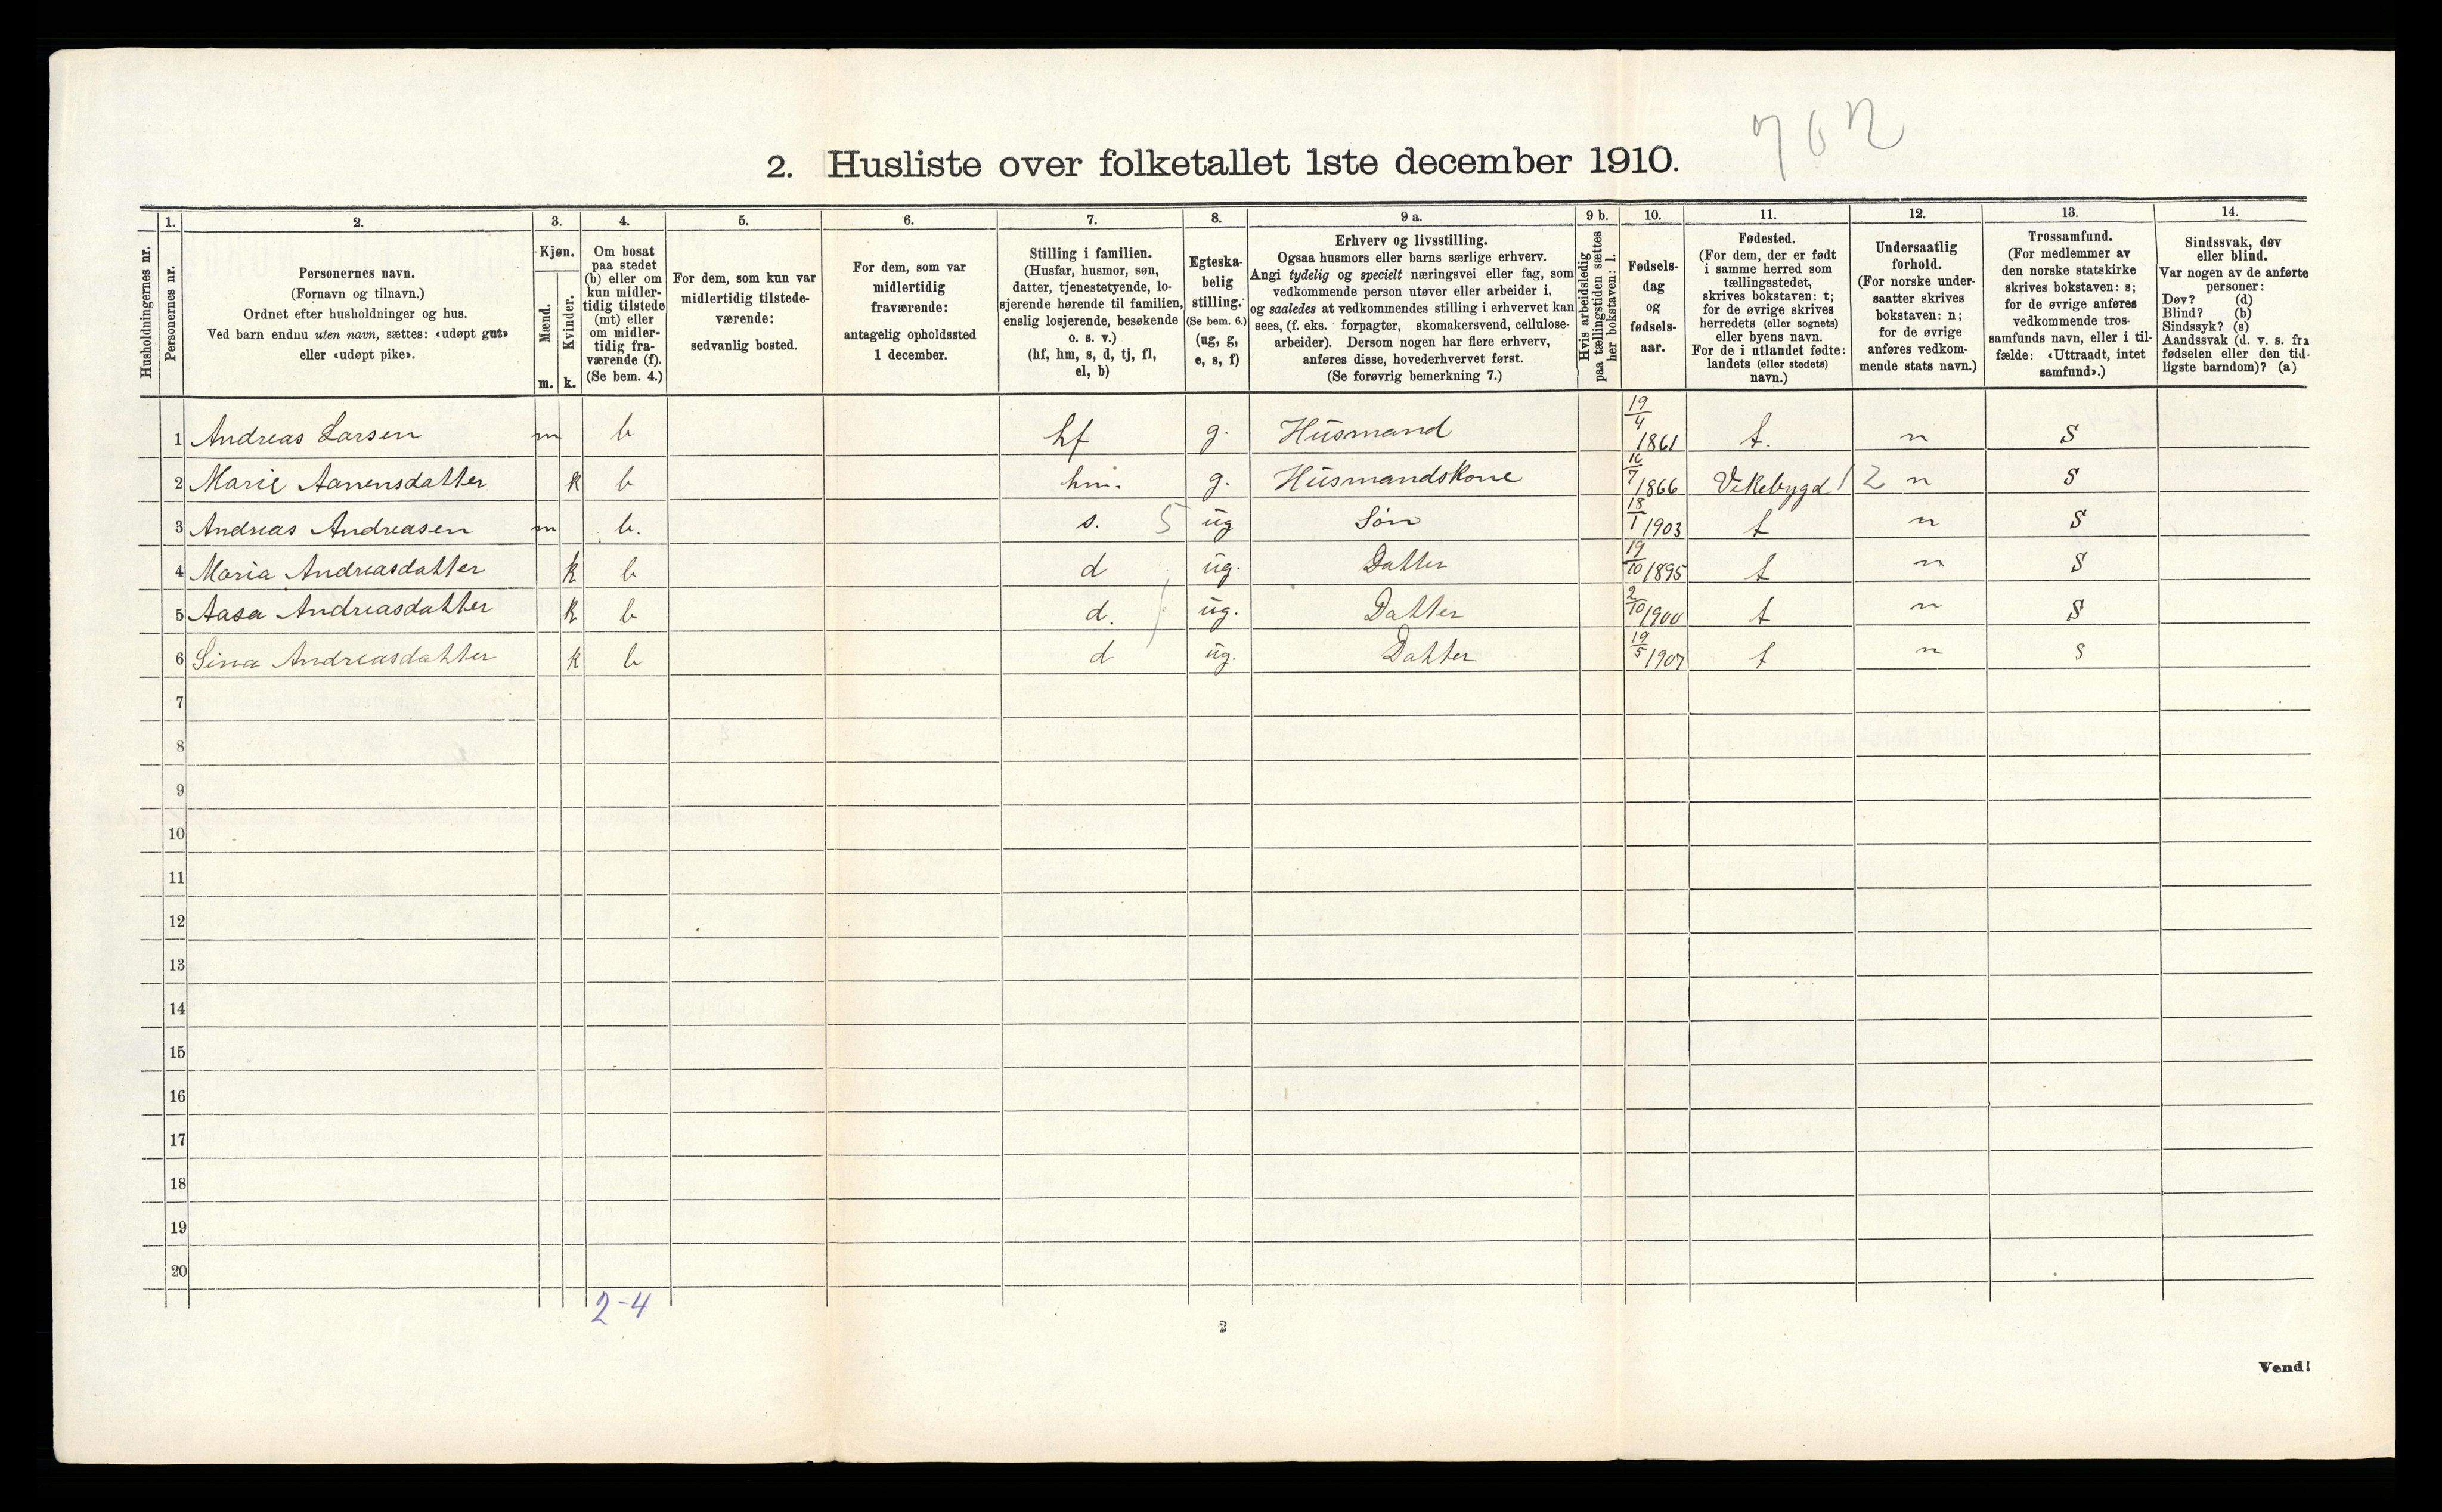 702
2. Husliste over folketallet 1ste december 1910.
1. 2. 3. 4. 5. 6. 7. 8. 9 a. 9 b. 10. 11. 12. 13. 14.
Husholdningernes nr.
Personernes nr.
Personernes navn.
(Fornavn og tilnavn.)
Ordnet efter husholdninger og hus.
Ved barn endnu uten navn, sættes: «udøpt gut»
eller «udøpt pike».
Kjøn.
Mænd.
Kvinder.
m. k.
Om bosat
paa stedet
(b) eller om
kun midler-
tidig tilstede
(mt) eller
om midler-
tidig fra-
værende (f).
(Se bem. 4.)
For dem, som kun var
midlertidig tilstede-
værende:
sedvanlig bosted.
For dem, som var
midlertidig
fraværende:
antagelig opholdssted
1 december.
Stilling i familien.
(Husfar, husmor, søn,
datter, tjenestetyende, lo-
sjerende hørende til familien,
enslig losjerende, besøkende
o. s. v.)
(hf, hm, s, d, tj, fl,
el, b)
Egteska-
belig
stilling.
(Se bem. 6.)
(ug, g,
e, s, f)
Erhverv og livsstilling.
Ogsaa husmors eller barns særlige erhverv.
Angi tydelig og specielt næringsvei eller fag, som
vedkommende person utøver eller arbeider i,
og saaledes at vedkommendes stilling i erhvervet kan
sees, (f. eks. forpagter, skomakersvend, cellulose-
arbeider). Dersom nogen har flere erhverv,
anføres disse, hovederhvervet først.
(Se forøvrig bemerkning 7.)
Hvis arbeidsledig
paa tællingstiden sættes
her bokstaven: l.
Fødsels-
dag
og
fødsels-
aar.
Fødested.
(For dem, der er født
i samme herred som
tællingsstedet,
skrives bokstaven: t;
for de øvrige skrives
herredets (eller sognets)
eller byens navn.
For de i utlandet fødte:
landets (eller stedets)
navn.)
Undersaatlig
forhold.
(For norske under-
saatter skrives
bokstaven: n;
for de øvrige
anføres vedkom-
mende stats navn.)
Trossamfund.
(For medlemmer av
den norske statskirke
skrives bokstaven: s;
for de øvrige anføres
vedkommende tros-
samfunds navn, eller i til-
fælde: «Uttraadt, intet
samfund».)
Sindssvak, døv
eller blind.
Var nogen av de anførte
personer:
Døv? (d)
Blind? (b)
Sindssyk? (s)
Aandssvak (d. v. s. fra
fødselen eller den tid-
ligste barndom)? (a)
1 Andreas Larsen m b hf g. Husmand 19/4 1861 t. n S
2 Marie Aanensdatter k b hm. g. Husmandskone 16/7 1866 Vikebygd 12 n S
3 Andreas Andreasen m b. s. 5 ug Søn 18/1 1903 t n S
4 Maria Andreasdatter k b d ug. Datter 19/10 1895 t n S
5 Aasa Andreasdatter k b d. ug. Datter 2/10 1900 t n S
6 Sina Andreasdatter k b d ug. Datter 19/5 1907 t n s
7
8
9
10
11
12
13
14
15
16
17
18
19
20
2-4
2
Vend!